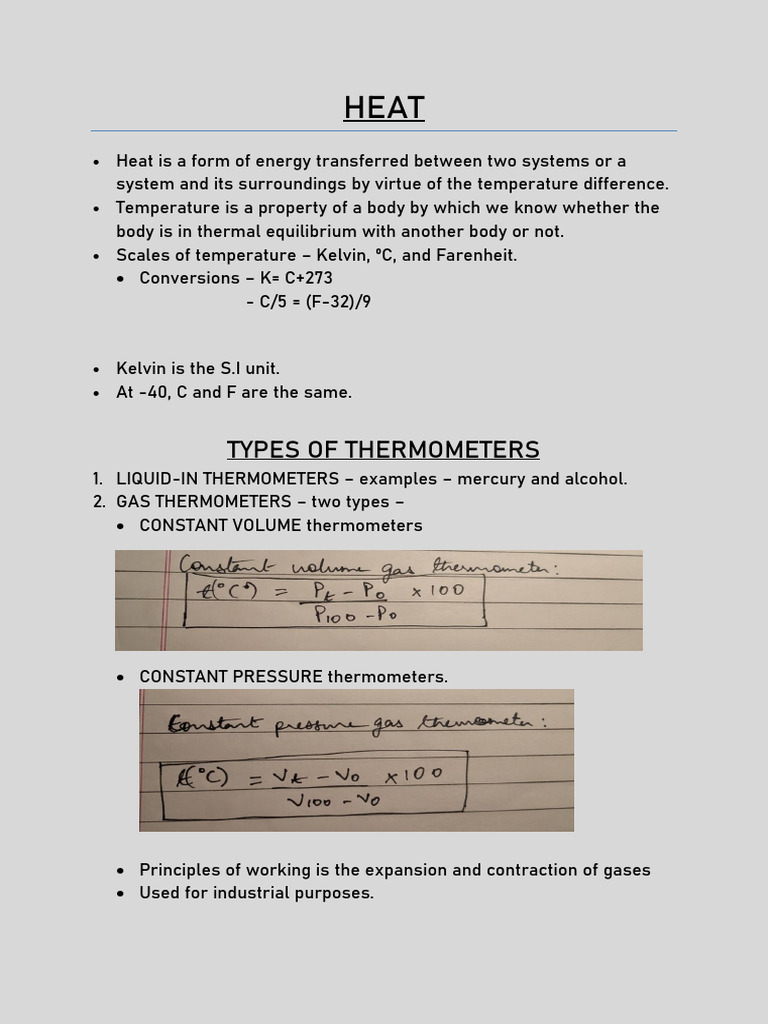 HEAT
• Heat is a form of energy transferred between two systems or a
system and its surroundings by virtue of the temperature difference.
• Temperature is a property of a body by which we know whether the
body is in thermal equilibrium with another body or not.
• Scales of temperature – Kelvin, ºC, and Farenheit.
• Conversions – K= C+273
- C/5 = (F-32)/9
• Kelvin is the S.I unit.
• At -40, C and F are the same.
TYPES OF THERMOMETERS
1. LIQUID-IN THERMOMETERS – examples – mercury and alcohol.
2. GAS THERMOMETERS – two types –
• CONSTANT VOLUME thermometers
Constant volume gas thermometer:
t(°C) = Pt - P0 × 100
P100 - P0
• CONSTANT PRESSURE thermometers.
Constant pressure gas thermometer:
t(°C) = Vt - V0 × 100
V100 - V0
• Principles of working is the expansion and contraction of gases
• Used for industrial purposes.